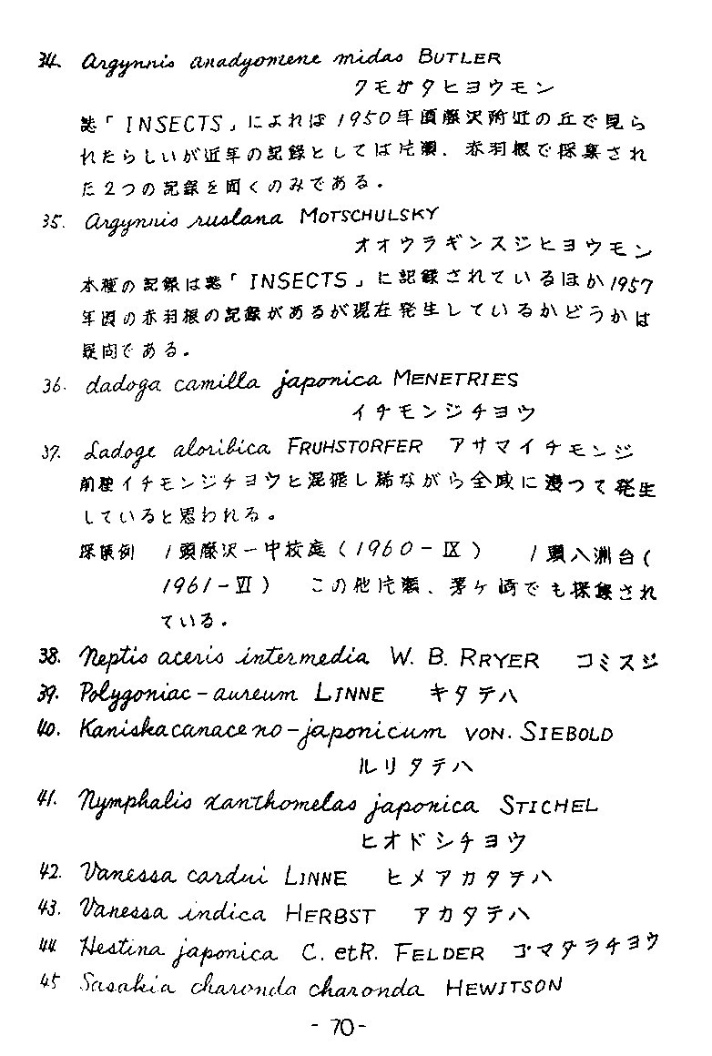 34. Argynnis anadyomene midas BUTLER
クモガタヒヨウモン
誌「INSECTS」によれば1950年頃藤沢附近の丘で見ら
れたらしいが近年の記録としては片瀬、赤羽根で採集され
た2つの記録を聞くのみである。
35. Argynnis ruslana MOTSCHULSKY
オオウラギンスジヒヨウモン
本種の記録は誌「INSECTS」に記録されているほか1957
年頃の赤羽根の記録があるが現在発生しているかどうかは
疑問である。
36. dadoga camilla japonica MENETRIES
イチモンジチヨウ
37. Ladoge aloribica FRUHSTORFER アサマイチモンジ
前種イチモンジチヨウと混棲し稀ながら全域に渡つて発生
していると思われる。
採集例 1頭藤沢一中校庭(1960-IX) 1頭八洲台(
1961-VI) この他片瀬、茅ケ崎でも採集され
ている。
38. Neptis aceris intermedia W. B. RRYER コミスジ
39. Polygoniac-aureum LINNE キタテハ
40. Kaniskacanace no-japonicum VON. SIEBOLD
ルリタテハ
41. Nymphalis xanthomelas japonica STICHEL
ヒオドシチヨウ
42. Vanessa cardui LINNE ヒメアカタテハ
43. Vanessa indica HERBST アカタテハ
44 Hestina japonica C. etR. FELDER ゴマダラチヨウ
45 Sasakia charonda charonda HEWITSON
-70-